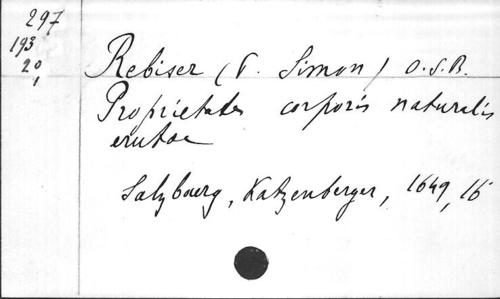 297
193
20
1
Rebiser (P. Simon) O.S.B.
Proprietates corporis naturalis
erutae
Salzburg, Katzenberger, 1649, 16